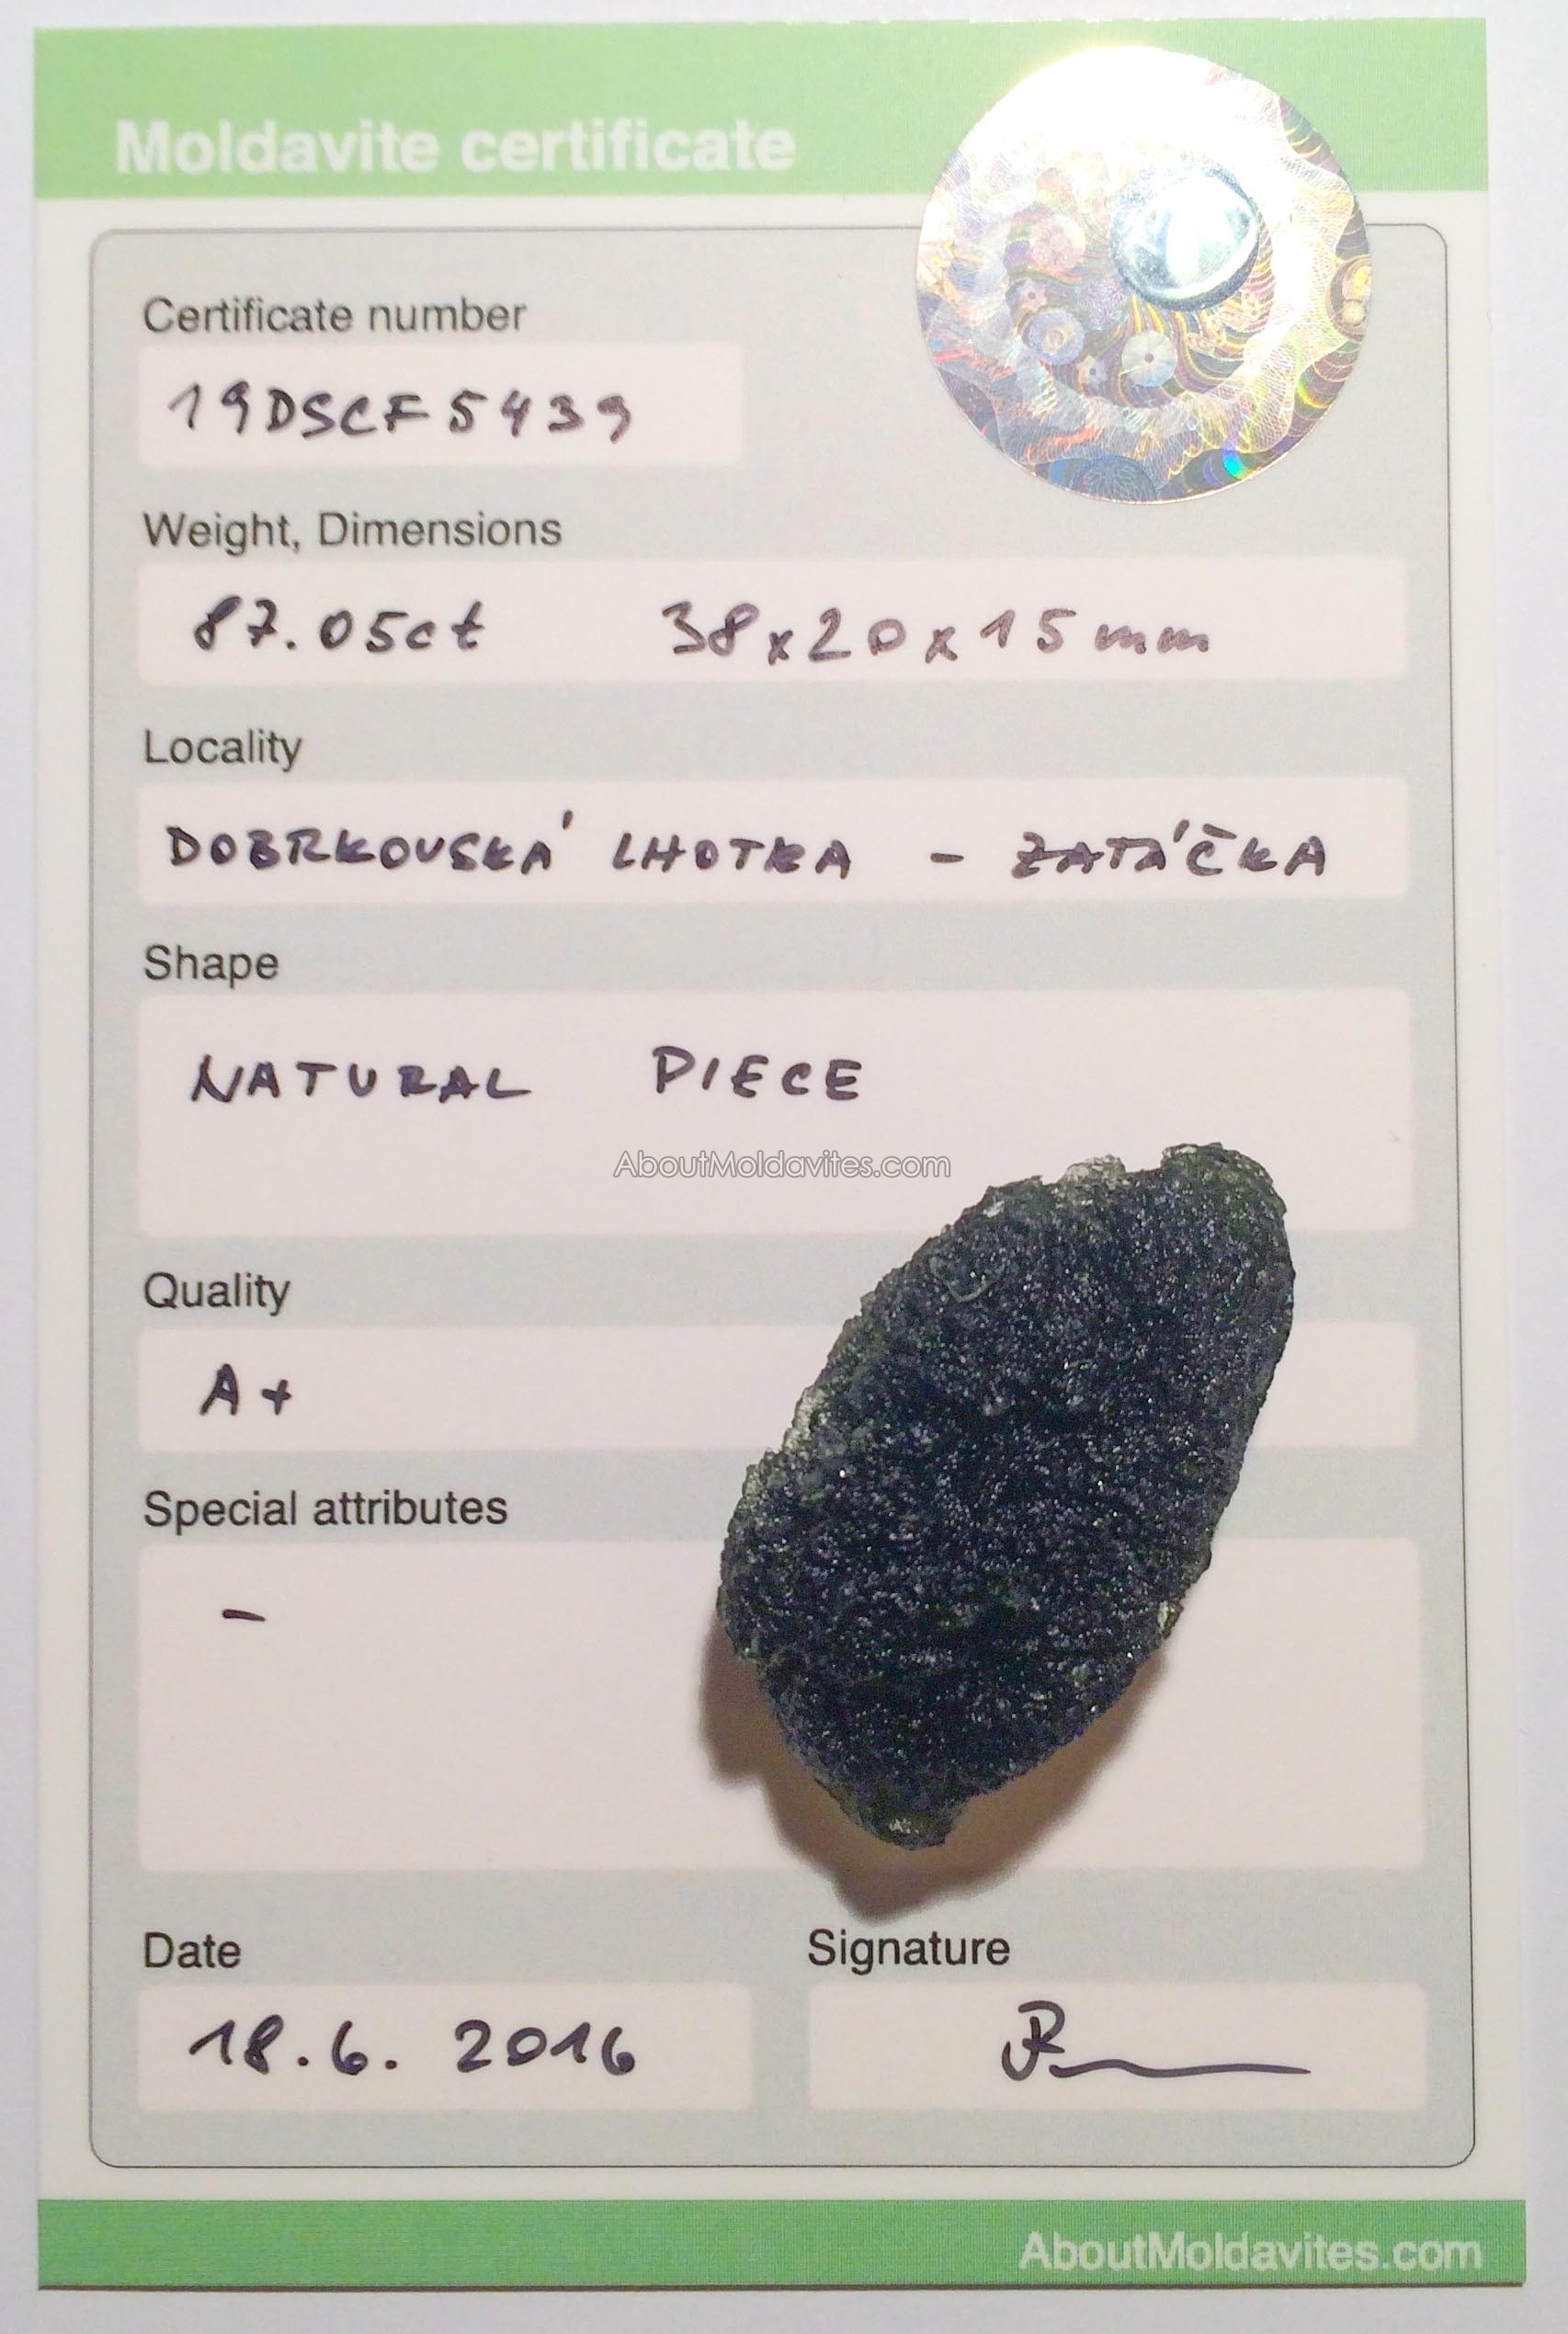 Moldavite certificate
Certificate number
19DSCF5439
Weight, Dimensions
87.05ct 38x20x15mm
Locality
DOBRKOVSKÁ LHOTKA - ZATÁČKA
Shape
NATURAL PIECE
AboutMoldavites.com
Quality
A+
Special attributes
-
Date Signature
18.6. 2016
AboutMoldavites.com